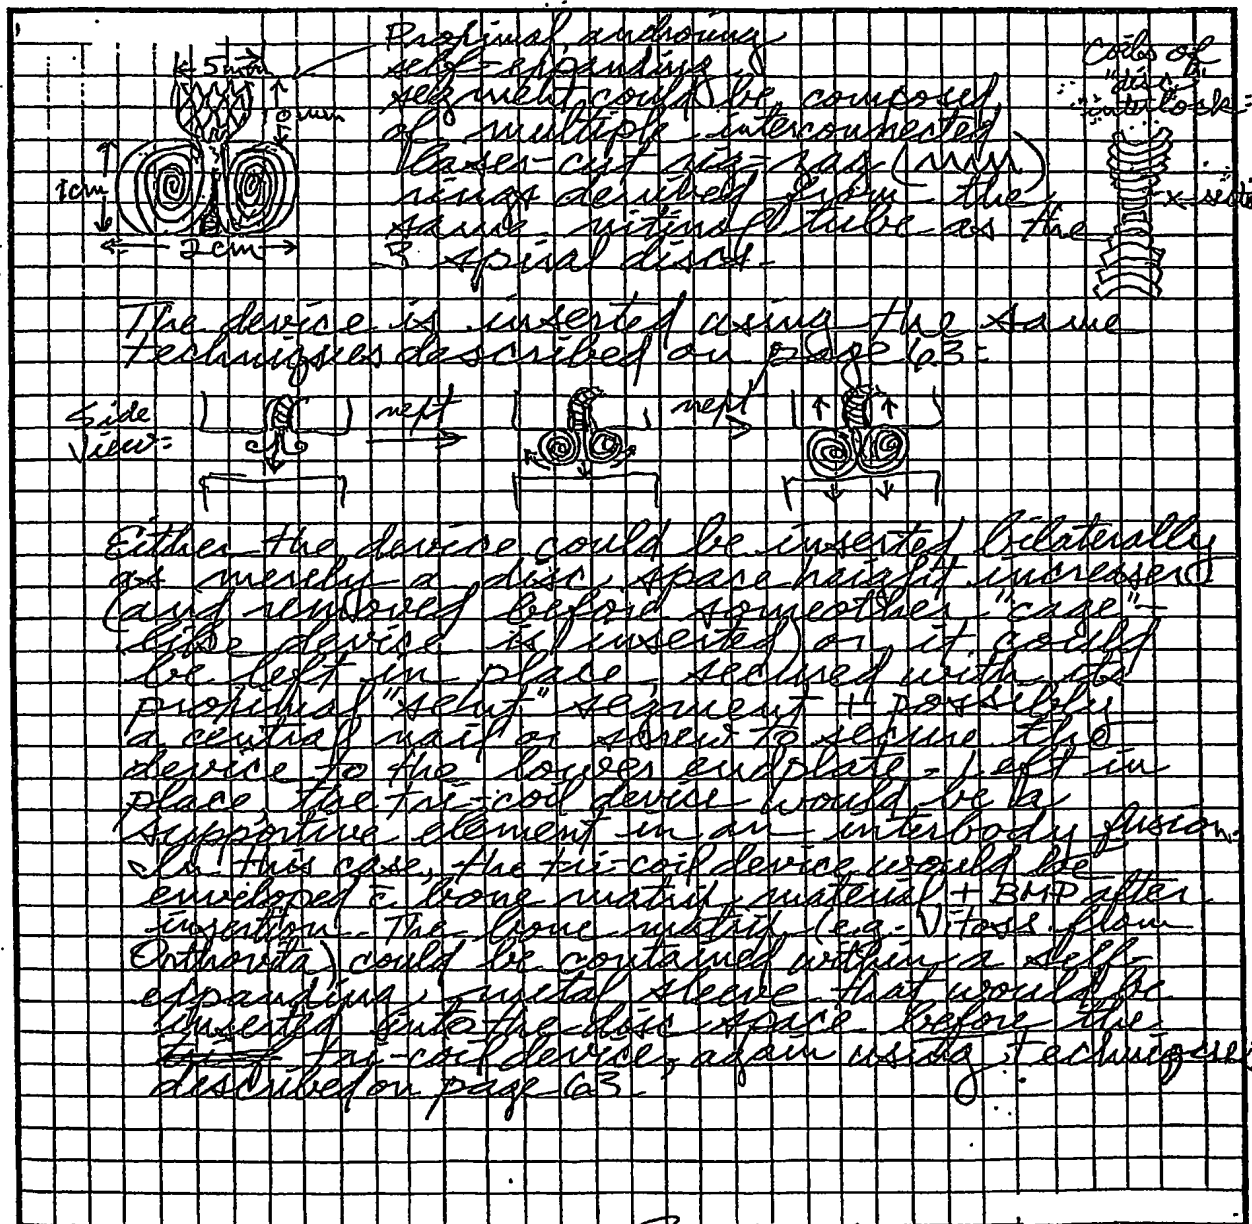 Proximal, anchoring
self-expanding
segment could be composed
of multiple interconnected
laser-cut zig-zag
rings derived from the
same nitinol tube as the
3 spiral discs.
5mm
10mm
1cm
2cm
Coils of
"disc"
interlock=
x-section
The device is inserted using the same
techniques described on page 63:
Side
View=
next
next
Either the device could be inserted bilaterally
as merely a disc space height increaser
(and removed before some other "cage"-
like device is inserted) or it could
be left in place, secured with its
proximal "stent" segment + possibly
a central nail or screw to secure the
device to the lower endplate. Left in
place, the tri-coil device would be a
supportive element in an interbody fusion.
In this case, the tri-coil device would be
enveloped c̄ bone matrix material + BMP after
insertion. The bone matrix (e.g. Vitoss from
Orthovita) could be contained within a self-
expanding metal sleeve that would be
inserted into the disc space before the
tri-coil device, again using techniques
described on page 63.